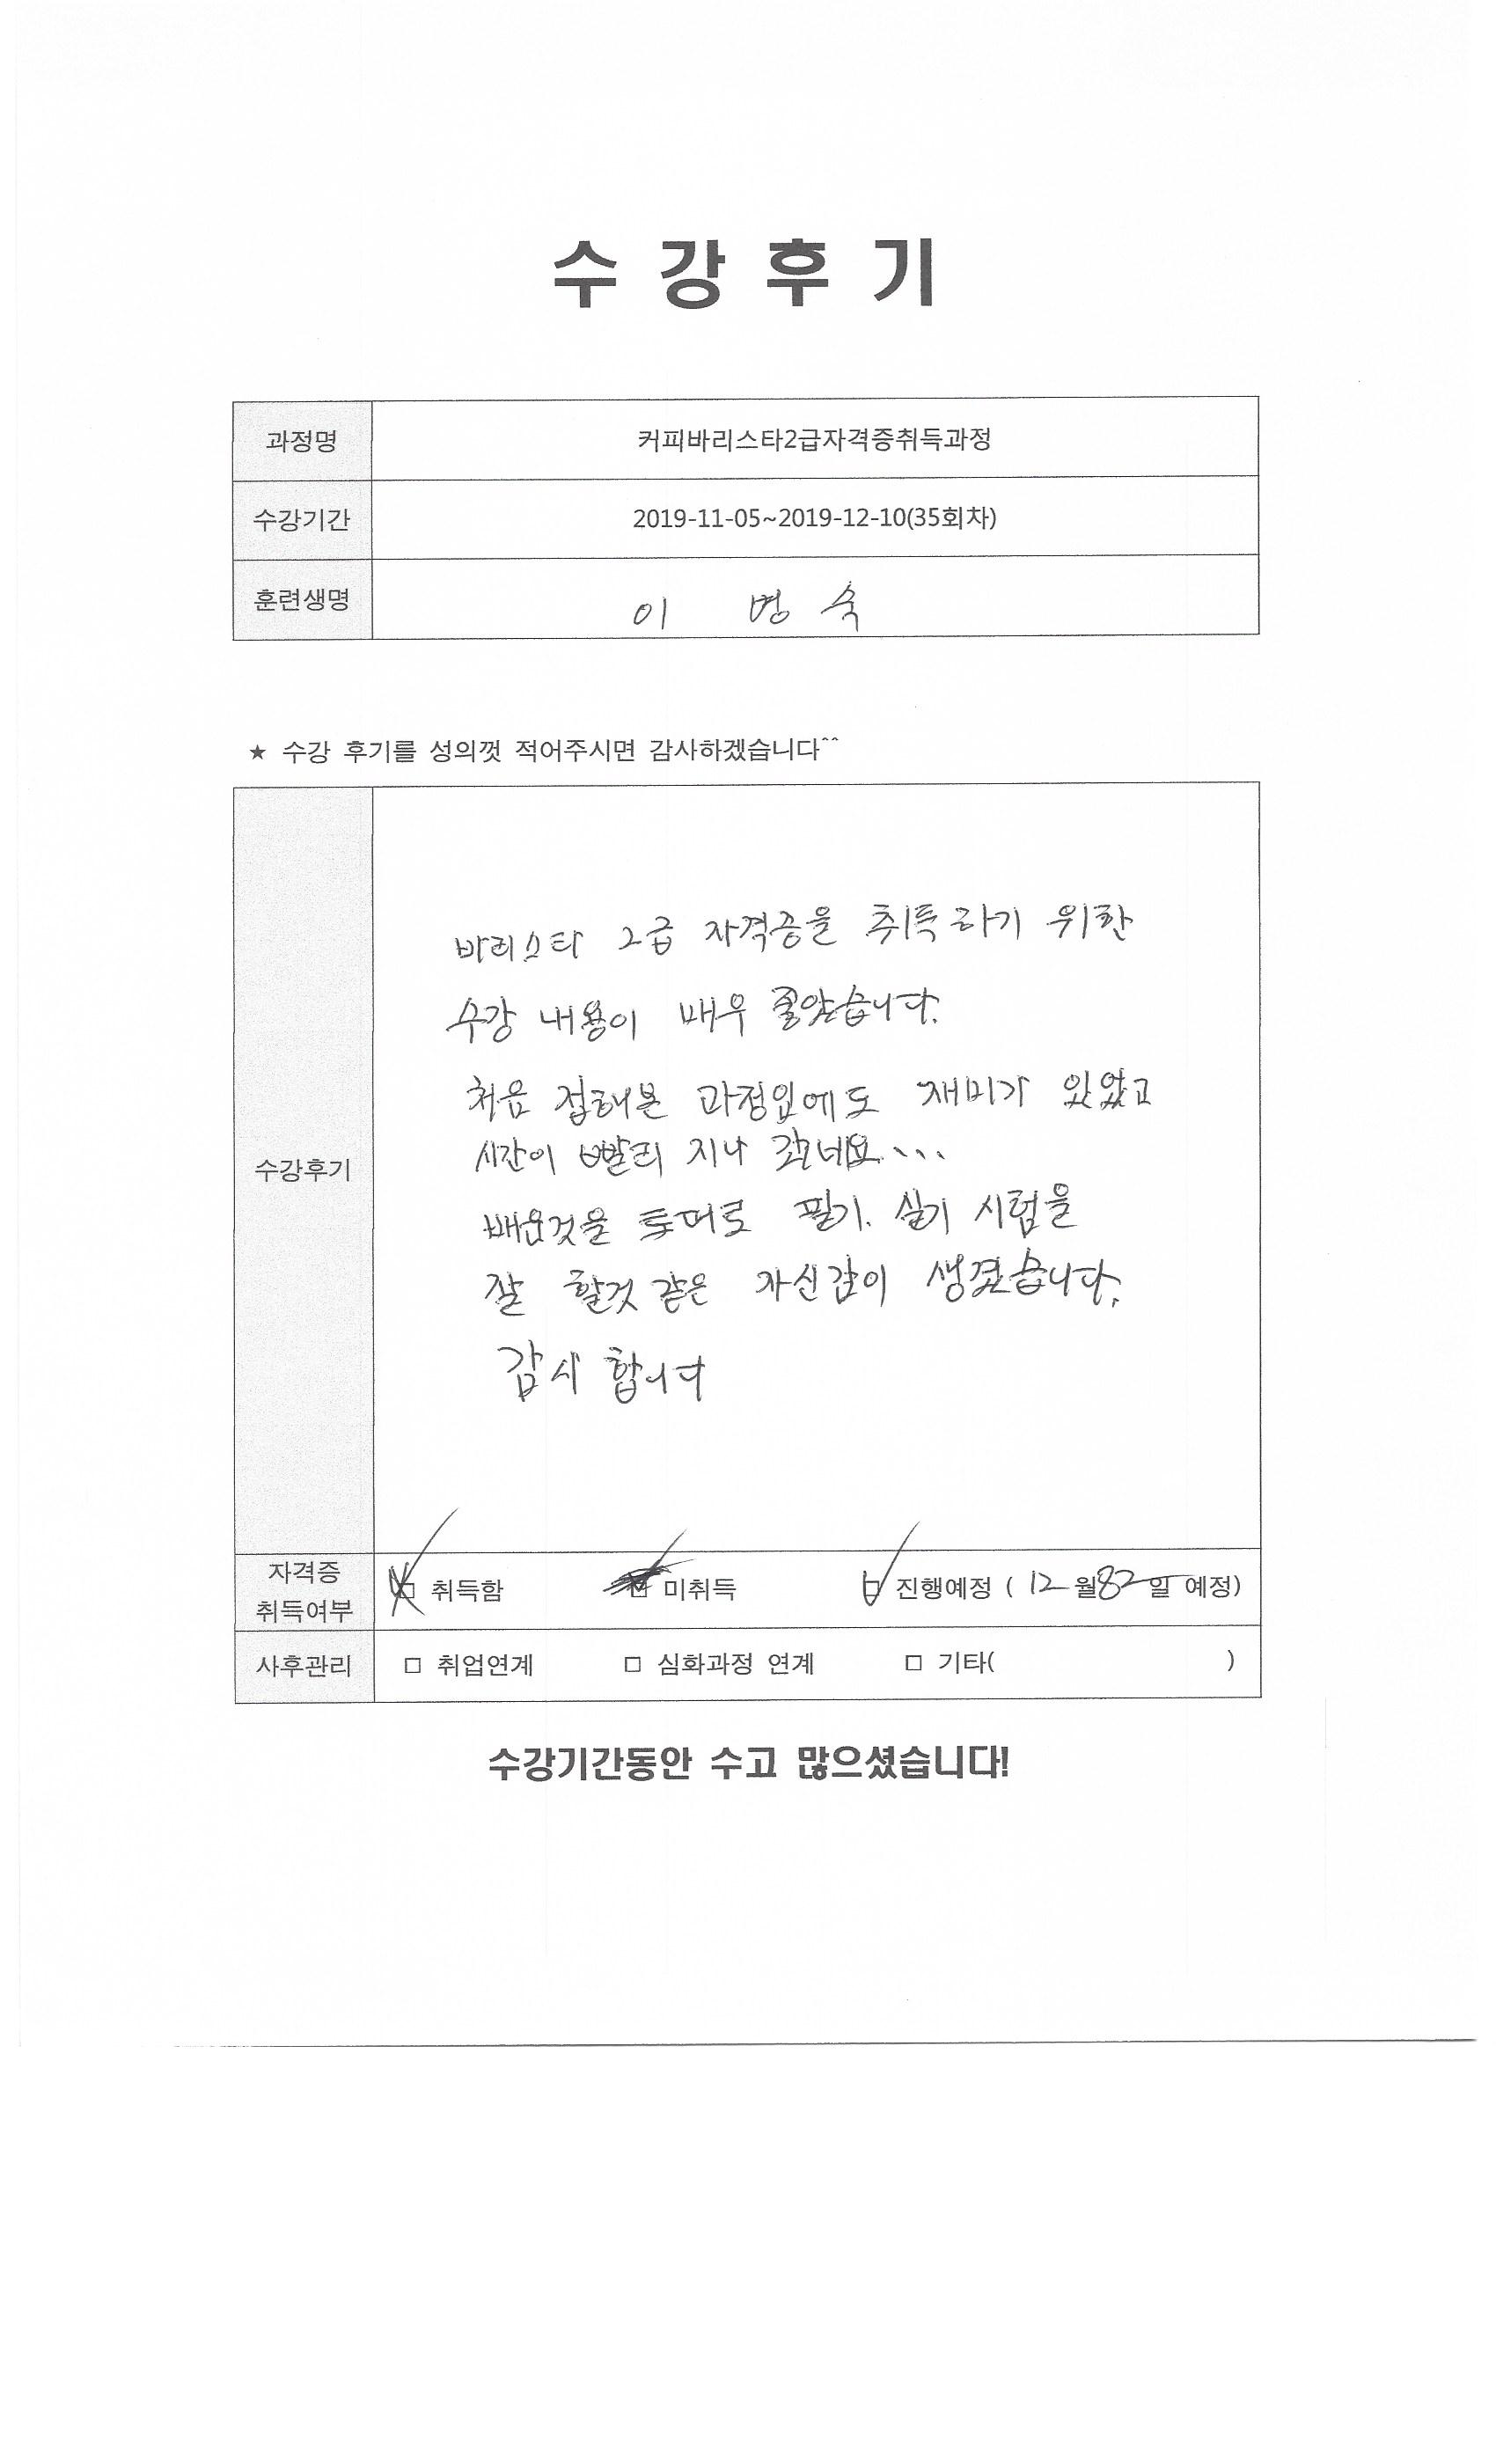 수 강 후 기
과정명 커피바리스타2급자격증취득과정
수강기간 2019-11-05~2019-12-10(35회차)
훈련생명 이 병 숙
★ 수강 후기를 성의껏 적어주시면 감사하겠습니다^^
수강후기
바리스타 2급 자격증을 취득하기 위한
수강 내용이 매우 좋았습니다.
처음 접해본 과정임에도 재미가 있었고
시간이 빨리 지나 갔네요...
배운것을 토대로 필기. 실기 시험을
잘 할것 같은 자신감이 생겼습니다.
감사 합니다
자격증
취득여부
□ 취득함 □ 미취득 □ 진행예정 ( 12 월 일 예정)
사후관리 □ 취업연계 □ 심화과정 연계 □ 기타( )
수강기간동안 수고 많으셨습니다!